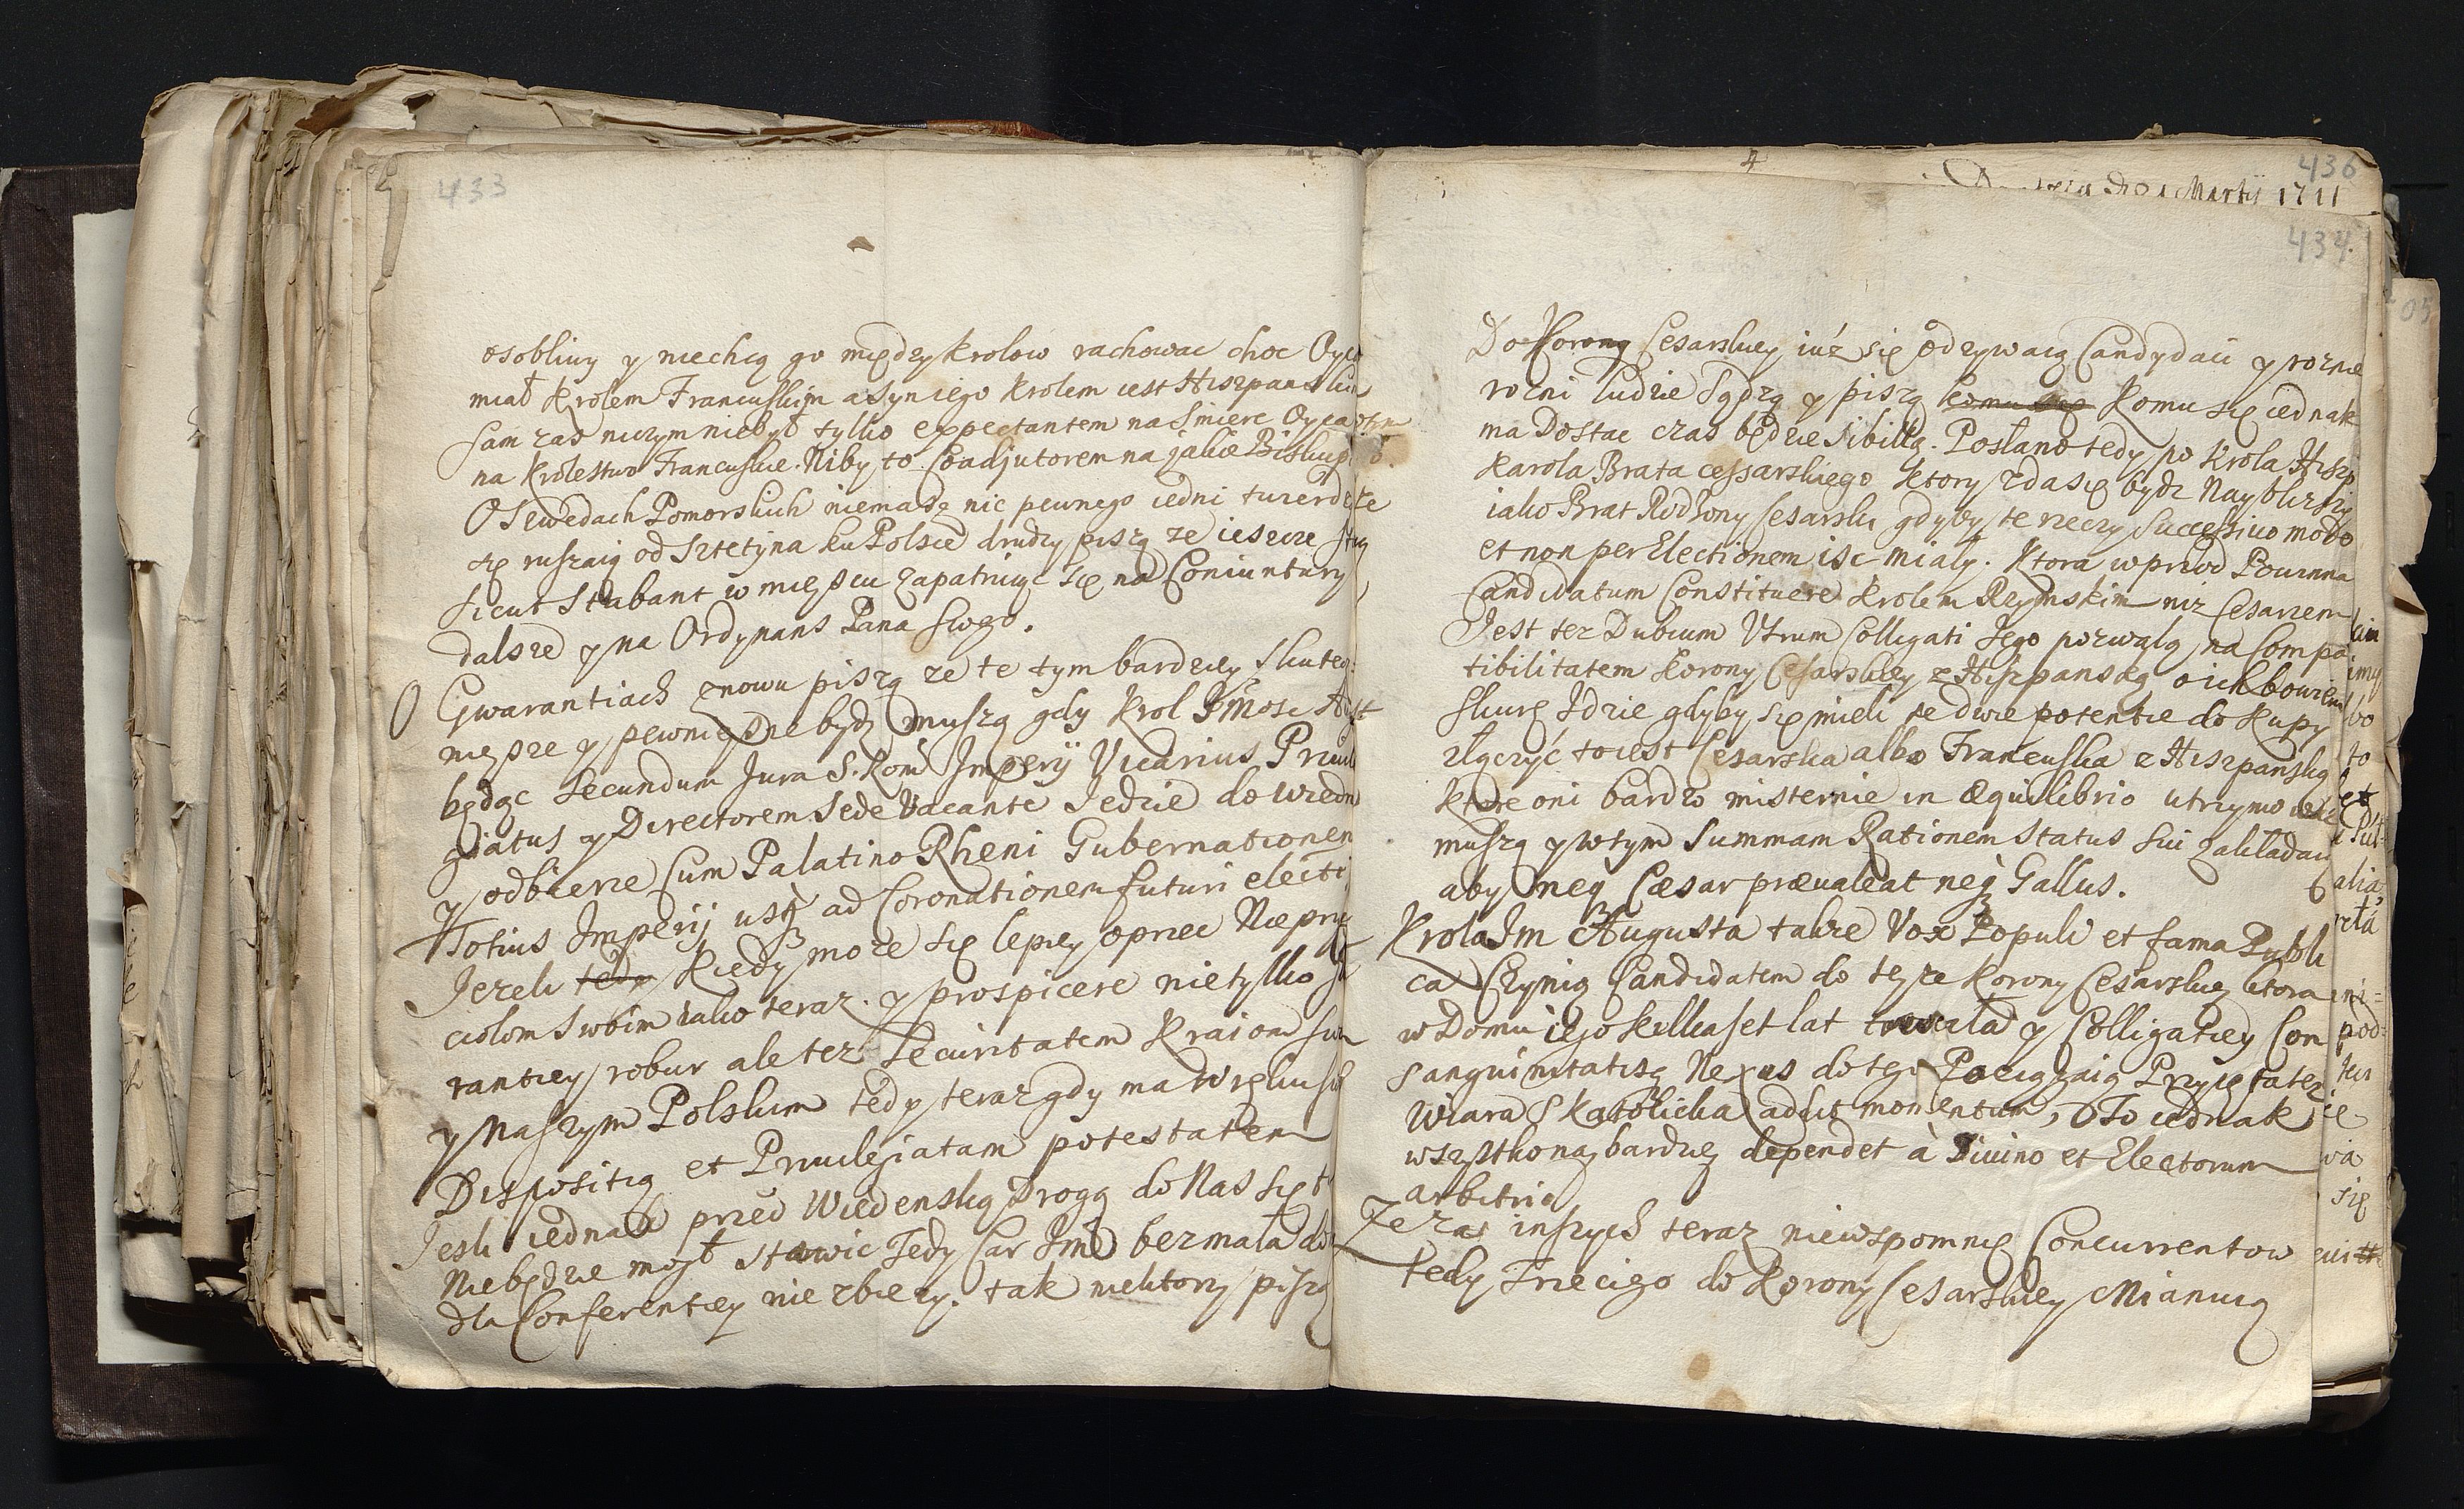 433
osobliwy y niechcą go między krolow rachowac choc Oyca
miał Krolem Francuskim a Syn iego Krolem iest Hiszpanskim
sam zas niczym niebył tylko expectantem na smierc Oyca
na Krolestwo Francuskie. Niby to Coadjutorem na jakie Biskup
O Szwedach Pomorskich niemasz nic pewnego iedni twierdzą ze
się ruszaią od Sztetyna ku Polsce drudzy piszą ze ieszcze
sicut Stabant w mieyscu zapatruiąc się na Coniunktury
dalsze y na Ordynans Pana swego.
O Gwarantiach znowu piszą ze te tym bardziey skutecz:
nieysze y pewnieysze bydz muszą gdy Krol Jmosc
będąc Secundum Jura S. Rom Imperij Vicarius Privile
giatus y Directorem Sede Vacante Jedzie do Wiedn
y odbierze Cum Palatino Rheni Gubernationem
Totius Imperij usq ad Coronationem futuri electi
Jezeli tedy Kiedy moze się lepiey oprzec Nieprzy
ciolom Swoim iako teraz. y prospicere nietylko
rantiey robur ale tez Securitatem Kraiom swo
y Naszym Polskim tedy teraz gdy ma w ręku
Dispositią et Privilegiatam potestatem
Jesli iednak przed Wiedenską Drogą do Nas się
Niebędzie mogł stawic Tedy Car Jmc bezmała
dla Conferentiey nie zbiezy. tak niektorzy piszą
4
436
Martij 1711
434.
Do Korony Cesarskiey iuż się odzywaią Candydaci y rozne
rozni ludzie Sądzą y piszą Komu się iednak
ma Dostac czas będzie Sibillą. Posłano tedy po Krola Hisz
Karola Brata cessarskiego ktory zda się bydz Naybliszy
iako Brat Rodzony Cesarski gdyby te rzeczy Successivo modo
et non per Electionem isc miały. Ktora wprzod Powinna
Candidatum Constituere Krolem Rzymskim niz Cesarzem
Jest tez Dubium Utrum Colligati Jego pozwalą na Compa
tibilitatem Korony Cesarskiey z Hiszpanską o ich bowiem
skurę Idzie gdyby się mieli te dwie potentie do Kupy
złączyć to iest Cesarska albo Francuska z Hiszpanską
Ktore oni bardzo misternie in Æquilibrio utrzymowac
muszą y w tym Summam Rationem Status sui zakładaią
aby neq Cæsar prævaleat neq Gallus.
Krola Jm Augusta takze Vox Populi et fama Publi
ca Czynią Candidatem do teyze Korony Cesarskiey ktora
w Domu iego kilkaset lat trwała y Colligatiey Con
sanguinitatisq Nexus do tego Pociągaią Przyięta tez
Wiara S Katolicka addit momentum, To iednak
wszystko naybardziey dependet à Divino et Electorum
arbitrio
Ze zas inszych teraz niewspomnię Concurrentow
tedy Trzeciego do Korony Cesarskiey Mianuią